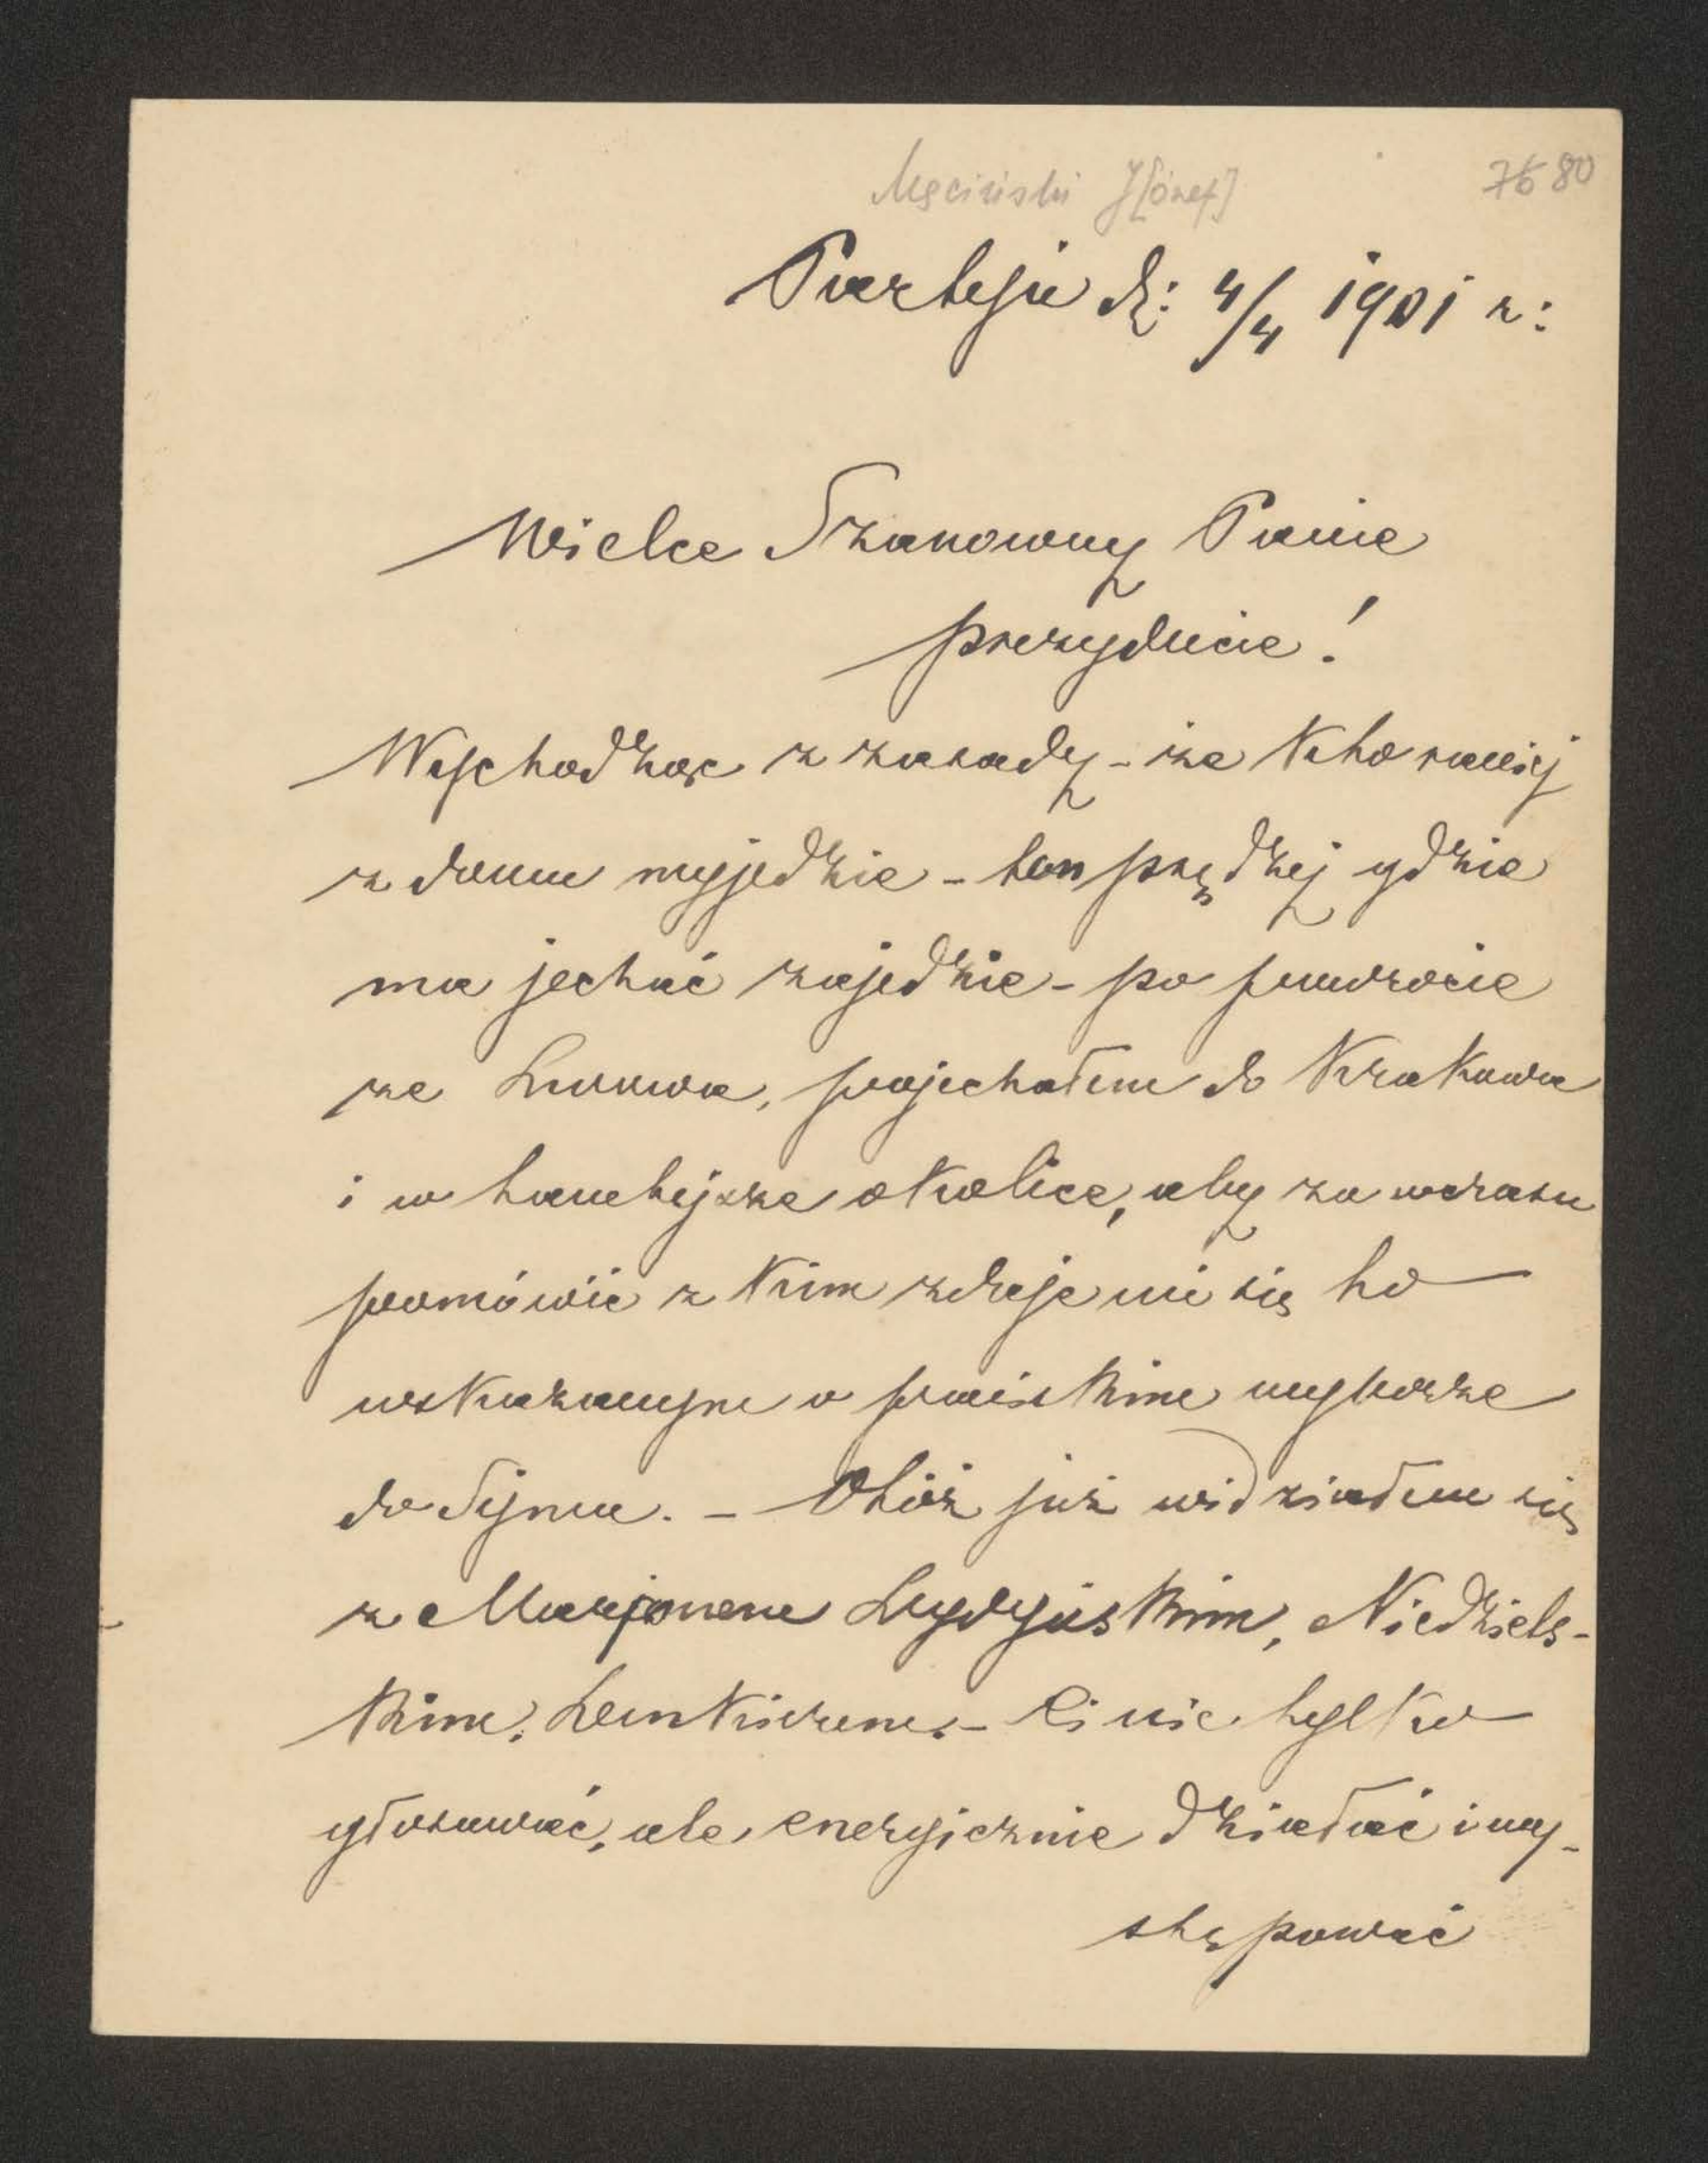 Męciński J[ózef]
76 80
Partyń d: 4/4 1901 r:
Wielce Szanowny Panie
prezydencie!
Wychodząc z zasady - że kto raniej
z domu wyjedzie - ten prędzej gdzie
ma jechać zajedzie - po powrocie
ze Lwowa, pojechałem do Krakowa
i w tamtejsze okolice, aby za wczasu
pomówić z kim zdaje mi się to
wskazanym o pańskim wyborze
do Sejmu. - Otóż już widziałem się
z Marjanem Dydyńskim, Niedziels-
kim, - Ci nie tylko
głosować, ale energicznie działać i wy-
stępować